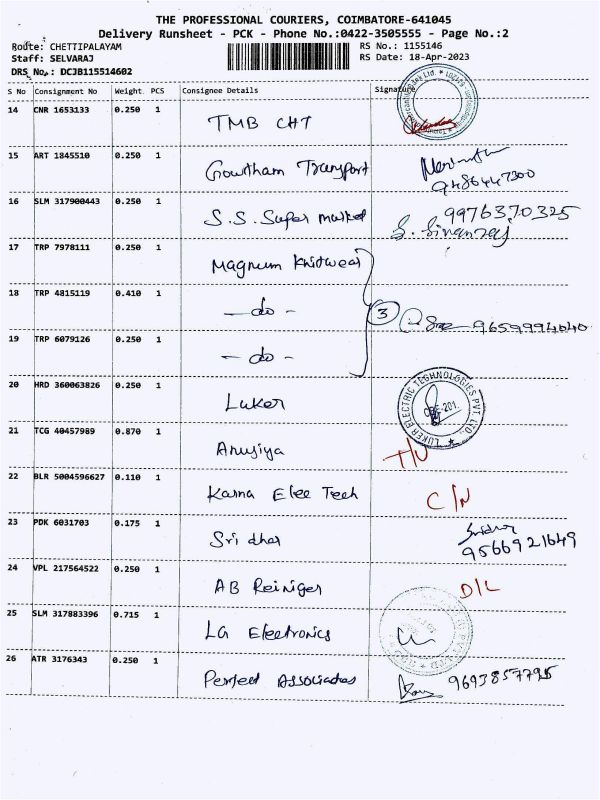 THE PROFESSIONAL COURIERS, COIMBATORE-641045
Delivery Runsheet - PCK - Phone No.:0422-3505555 - Page No.:2
Route: CHETTIPALAYAM RS No.: 1155146
Staff: SELVARAJ RS Date: 18-Apr-2023
DRS No.: DCJB115514602
S No Consignment No Weight. PCS Consignee Details Signature
14 CNR 1653133 0.250 1 TMB CHT
15 ART 1845510 0.250 1 Gowtham Transport 9486447300
16 SLM 317900443 0.250 1 S.S. Super market 9976370325
17 TRP 7978111 0.250 1 Magnum Knitwear
18 TRP 4815119 0.410 1 - do - 3 9659994040
19 TRP 6079126 0.250 1 - do -
20 HRD 360063826 0.250 1 Luker LUKER ELECTRIC TECHNOLOGIES PVT. LTD., CBE-201.
21 TCG 40457989 0.870 1 Anusiya
22 BLR 5004596627 0.110 1 Karna Elec Tech C/N
23 PDK 6031703 0.175 1 Sridhar 9566921649
24 VPL 217564522 0.250 1 AB Reiniger D/L
25 SLM 317883396 0.715 1 LG Electronics
26 ATR 3176343 0.250 1 Perfect Associates 9693857795